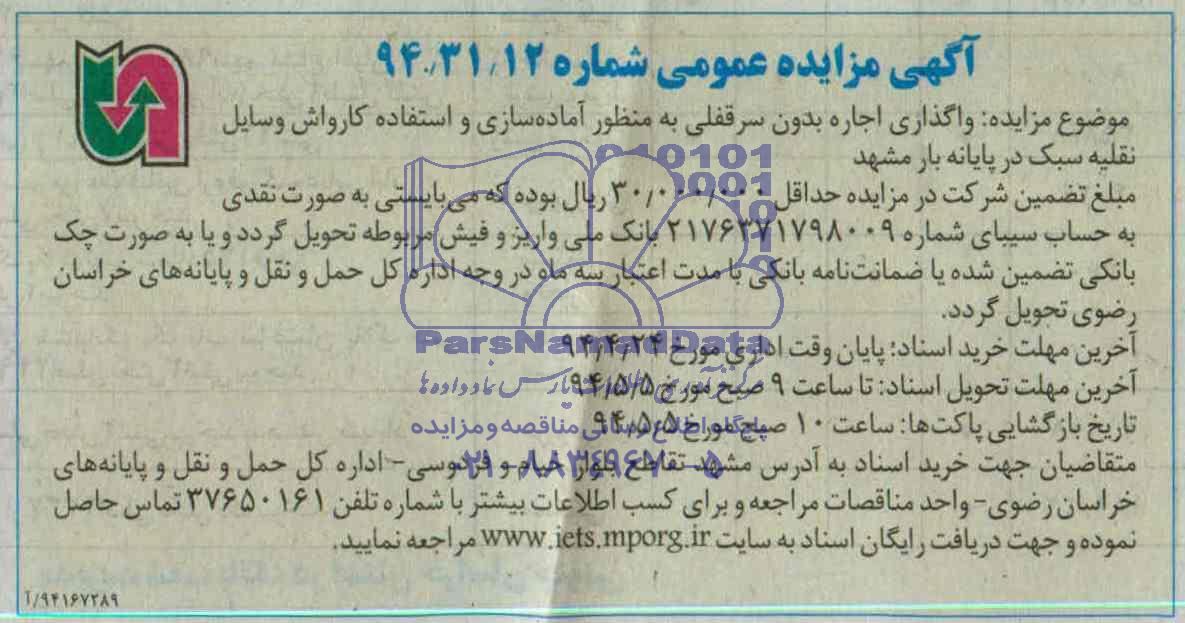 آگهی مزایده عمومی شماره ۹۴٫۳۱٫۱۲
موضوع مزایده: واگذاری اجاره بدون سرقفلی به منظور آماده‌سازی و استفاده کارواش وسایل
نقلیه سبک در پایانه بار مشهد
مبلغ تضمین شرکت در مزایده حداقل ۳۰٫۰۰۰٫۰۰۰ ریال بوده که می‌بایستی به صورت نقدی
به حساب سیبای شماره ۲۱۷۶۳۷۱۷۹۸۰۰۹ بانک ملی واریز و فیش مربوطه تحویل گردد و یا به صورت چک
بانکی تضمین شده یا ضمانت‌نامه بانکی با مدت اعتبار سه ماه در وجه اداره کل حمل و نقل و پایانه‌های خراسان
رضوی تحویل گردد.
آخرین مهلت خرید اسناد: پایان وقت اداری مورخ ۹۴٫۴٫۲۴
آخرین مهلت تحویل اسناد: تا ساعت ۹ صبح مورخ ۹۴٫۵٫۵
تاریخ بازگشایی پاکت‌ها: ساعت ۱۰ صبح مورخ ۹۴٫۵٫۵
متقاضیان جهت خرید اسناد به آدرس مشهد تقاطع بلوار خیام و فردوسی- اداره کل حمل و نقل و پایانه‌های
خراسان رضوی- واحد مناقصات مراجعه و برای کسب اطلاعات بیشتر با شماره تلفن ۳۷۶۵۰۱۶۱ تماس حاصل
نموده و جهت دریافت رایگان اسناد به سایت www.iets.mporg.ir مراجعه نمایید.
۹۴۱۶۷۲۸۹/آ
ParsNamadData
پارس نماد داده‌ها
پایگاه اطلاع رسانی مناقصه و مزایده
۰۲۱-۸۸۳۴۹۶۷۰-۵